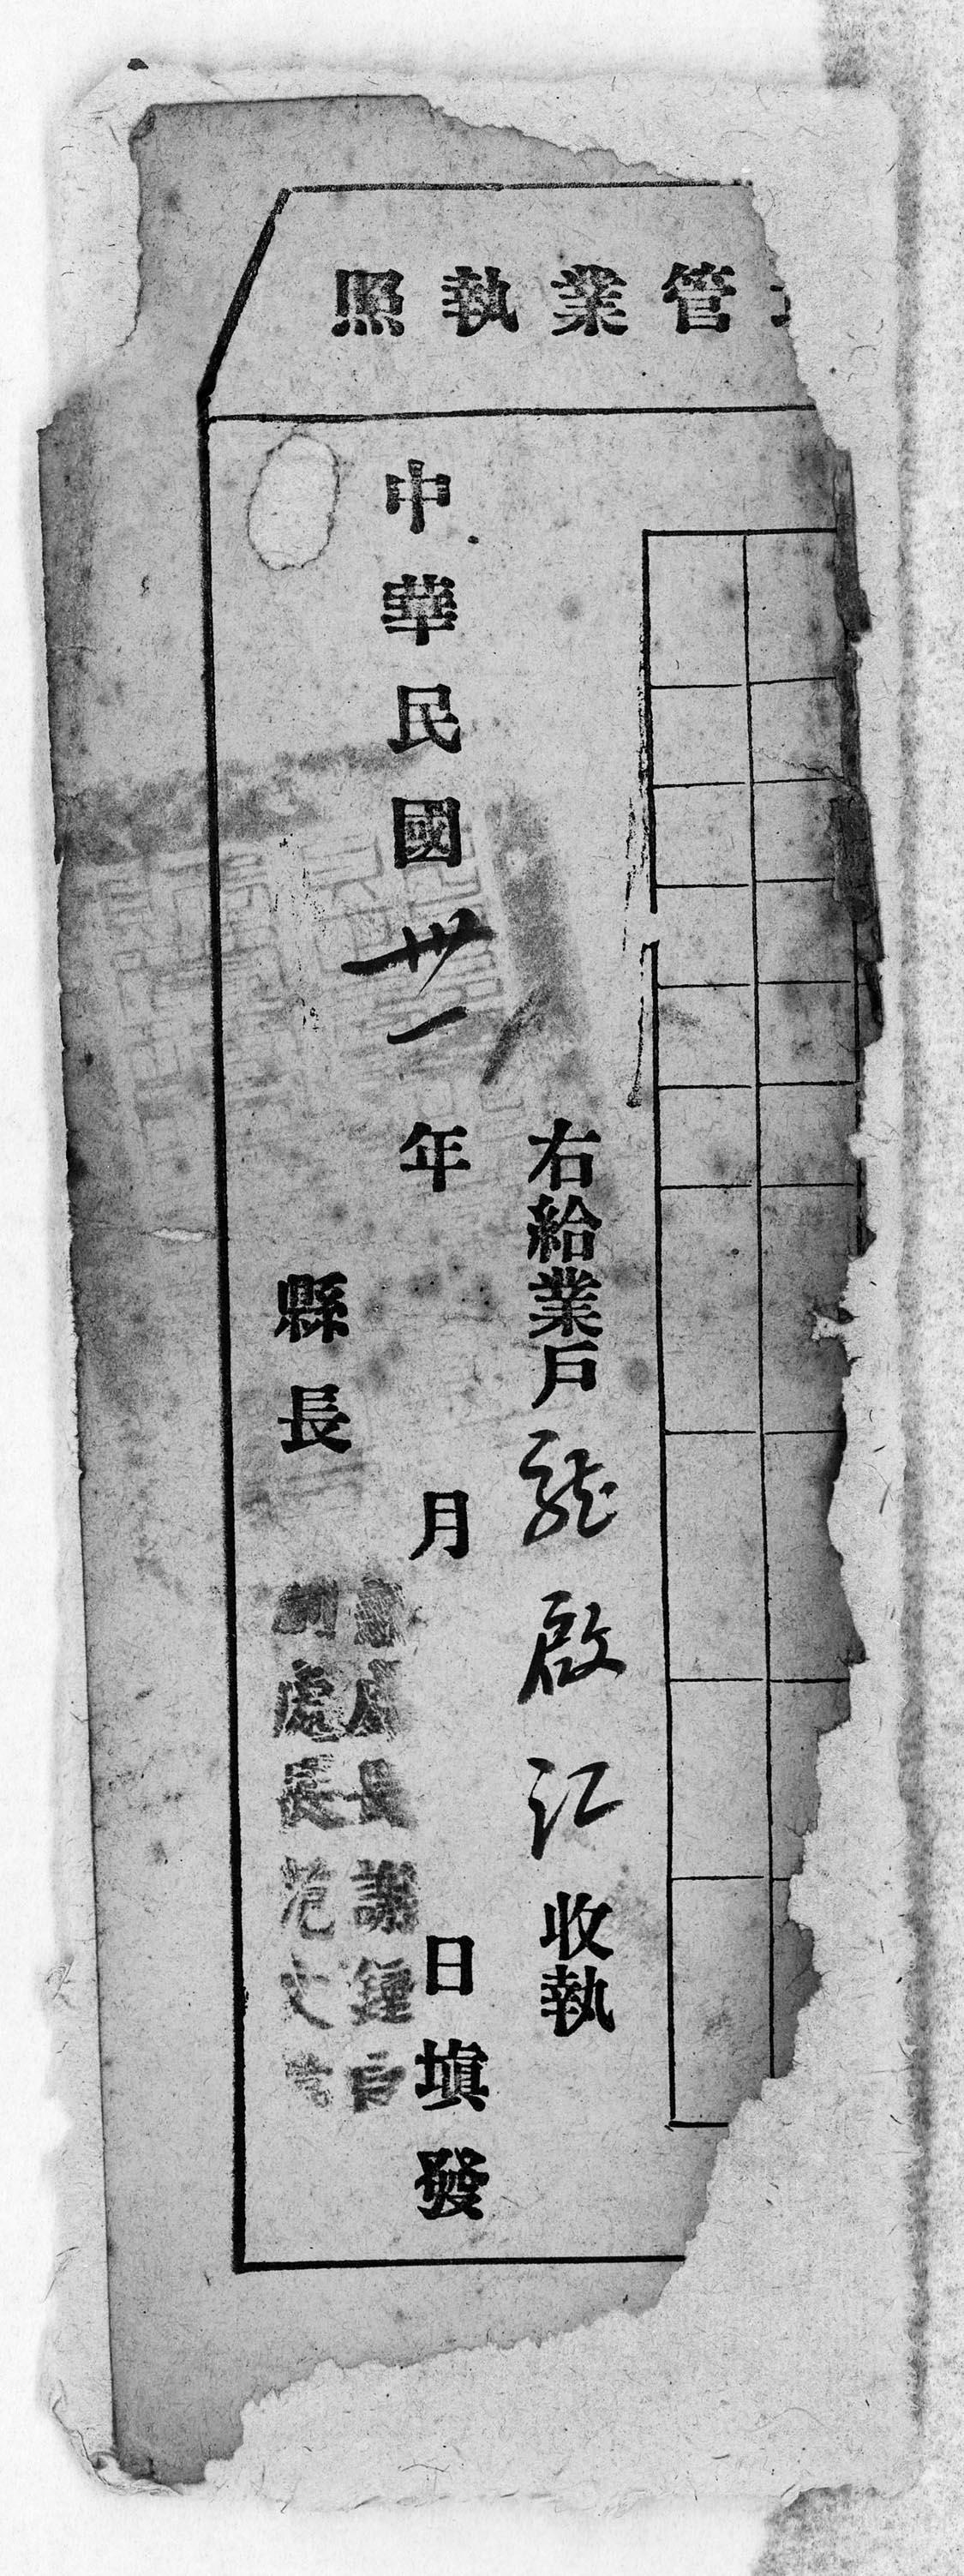 管業執照
右給業戶龍啟江收執
中華民國卅一年月日填發
縣長
處長謝鍾
處長范文